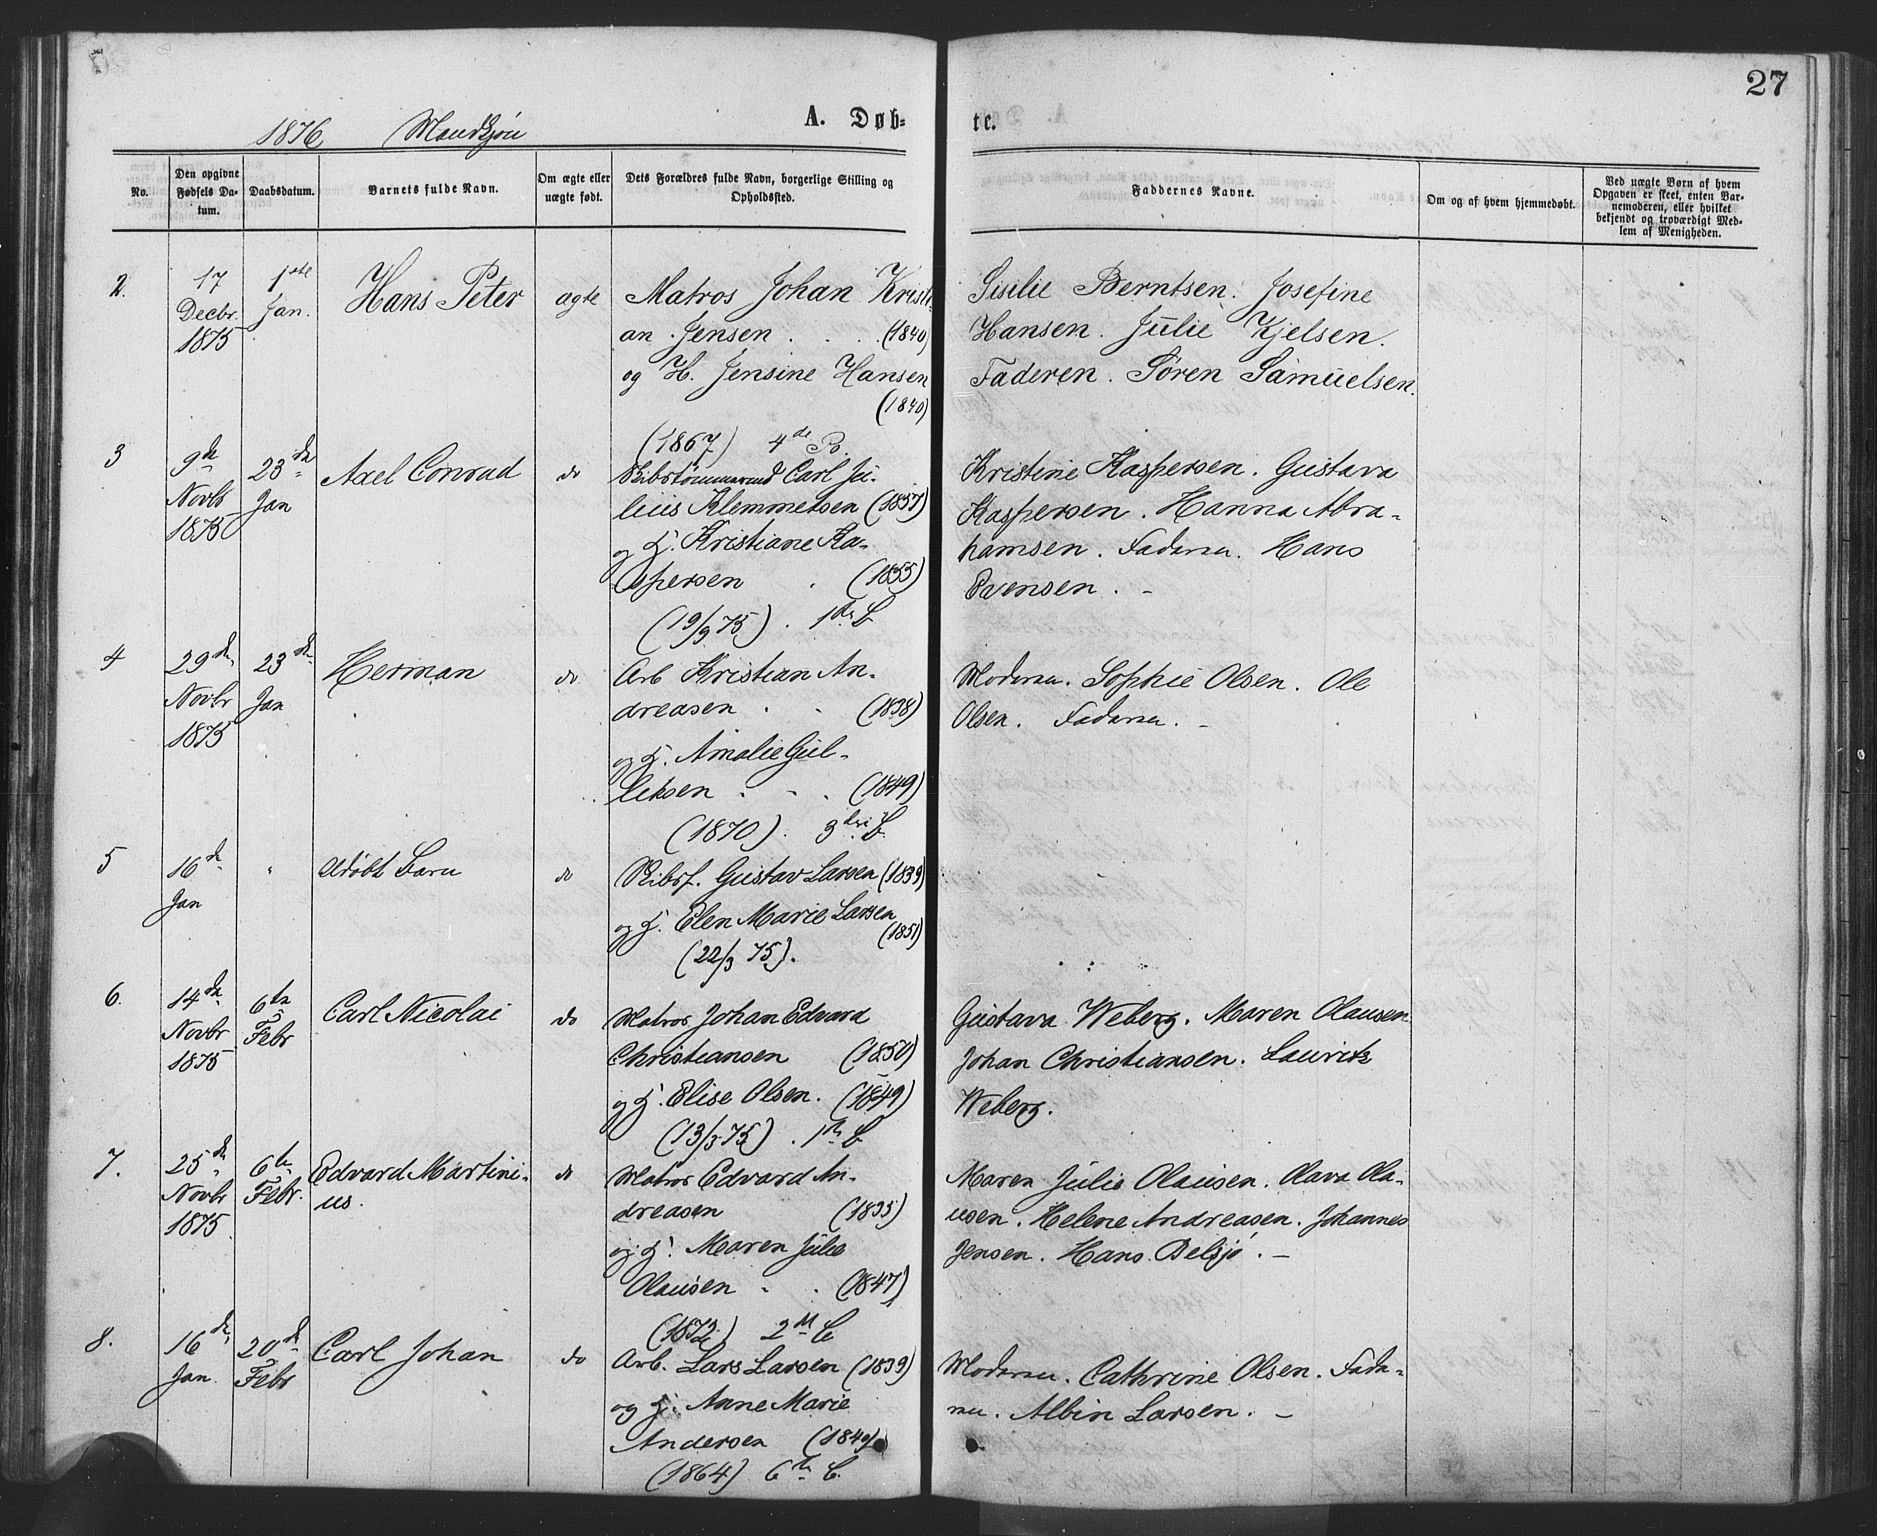 27
1876 Mandkjøn
A. Døb-
te.
No.
Den opgivne Fødsels Da-
tum.
Daabsdatum.
Barnets fulde Navn.
Om ægte eller
uægte født.
Dets Forældres fulde Navn, borgerlige Stilling og
Opholdssted.
Faddernes Navne.
Om og af hvem hjemmedøbt.
Ved uægte Børn af hvem
Opgaven er skeet, enten Bar-
nemoderen, eller hvilket
bekjendt og troværdigt Med-
lem af Menigheden.
2.
17
Decbr.
1875
1ste
Jan.
Hans Peter
ægte
Matros Johan Kristi-
an Jensen . . . (1840)
og H. Jensine Hansen
(1840)
(1867) 4de B.
Sisilie Berntsen. Josefine
Hansen. Julie Kjelsen.
Faderen. Søren Samuelsen.
3
9de
Novbr
1875
23de
Jan
Axel Conrad
do
Skibstømmermd Carl Ju-
lius Klemmetsen (1857)
og H. Kristiane Ka-
spersen . (1855)
(19/9 75) . 1ste B
Kristine Kaspersen. Gustava
Kaspersen. Hanna Abra-
hamsen. Faderen. Hans
Evensen. -
4
29de
Novbr
1875
23de
Jan
Herman
do
Arb Kristian An-
dreasen . . (1838)
og H. Amalie Gul-
liksen . . . (1849)
(1870). 3die B.
Moderen. Sophie Olsen. Ole
Olsen. Faderen. -
5
16de
Jan
"
Udøbt Barn
do
Skibsf. Gustav Larsen (1839)
og H. Elen Marie Larsen
(1851)
(22/3 75).
6.
14de
Novbr
1875
6te
Febr
Carl Nicolai
do
Matros Johan Edvard
Christiansen (1850)
og H. Elise Olsen. (1849)
(13/5 75) . 1ste B
Gustava Weberg. Maren Olausen
Johan Christiansen. Lauritz
Weberg.
7.
25de
Novbr
1875
6te
Febr.
Edvard Martini-
us.
do
Matros Edvard An-
dreasen (1835)
og H. Maren Julie
Olausen . . (1847)
(1872) 2det B
Maren Julie Olausen. Olava Ola-
usen. Helene Andreasen. Johannes
Jensen. Hans Belsjø. -
8.
16de
Jan.
20de
Febr
Carl Johan
do
Arb. Lars Larsen (1839)
og H. Anne Marie
Andersen (1849)
(1864) 6te B.
Moderen. Cathrine Olsen. Fade-
ren. Albin Larsen. -